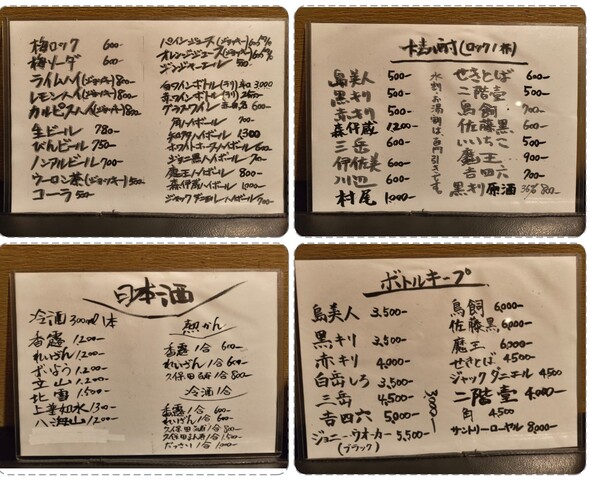 梅ロック 600-
梅ソーダ 600-
ライムハイ(ジョッキー)800-
レモンハイ(ジョッキー)800-
カルピスハイ(ジョッキー)800-
生ビール 780-
びんビール 750-
ノンアルビール 700-
ウーロン茶(ジョッキー)500-
コーラ 500-
パインジュース(ジョッキー)600
オレンジジュース(ジョッキー)600
ジンジャーエール 500-
白ワインボトル 3000
赤ワインボトル
グラスワイン 赤白 600-
角ハイボール 700-
知多ハイボール 1,300
ホワイトホースハイボール 600-
ジョニ黒ハイボール 700-
魔王ハイボール 800-
森伊蔵ハイボール 1000-
ジャックダニエルハイボール 700-
焼酎(ロック/杯)
島美人 500-
黒キリ 500-
赤キリ 500-
森伊蔵 1200-
三岳 600-
伊佐美 600-
川辺 600-
村尾 1000-
水割、お湯割は、百円引きです。
せきとば 600-
二階堂 500-
鳥飼 700-
佐藤黒 600-
いいちこ 500-
魔王 900-
吉四六 700-
黒キリ原酒 36% 800-
日本酒
冷酒 300ml 1本
香露 1,200-
れいざん 1,200-
ずいよう 1,200-
立山 1,200-
北雪 1,500-
上善如水 1300-
八海山 1,200-
熱かん
香露 1合 600-
れいざん 1合 600-
久保田 1合 800-
冷酒 1合
香露 1合 600-
れいざん 1合 600-
久保田 1合 800-
久保田まんじゅ 1合 1,500-
だっさい 1合 1,000-
ボトルキープ
島美人 3,500-
黒キリ 3,500-
赤キリ 4,000-
白岳しろ 3,500-
三岳 4,500-
吉四六 5,000-
ジョニーウォーカー 5,500-
(ブラック)
3000-
鳥飼 6,000-
佐藤黒 6,000-
魔王 6,000-
せきとば 4,500
ジャックダニエル 4,500
二階堂 4,000-
角 4,500
サントリーローヤル 8,000-